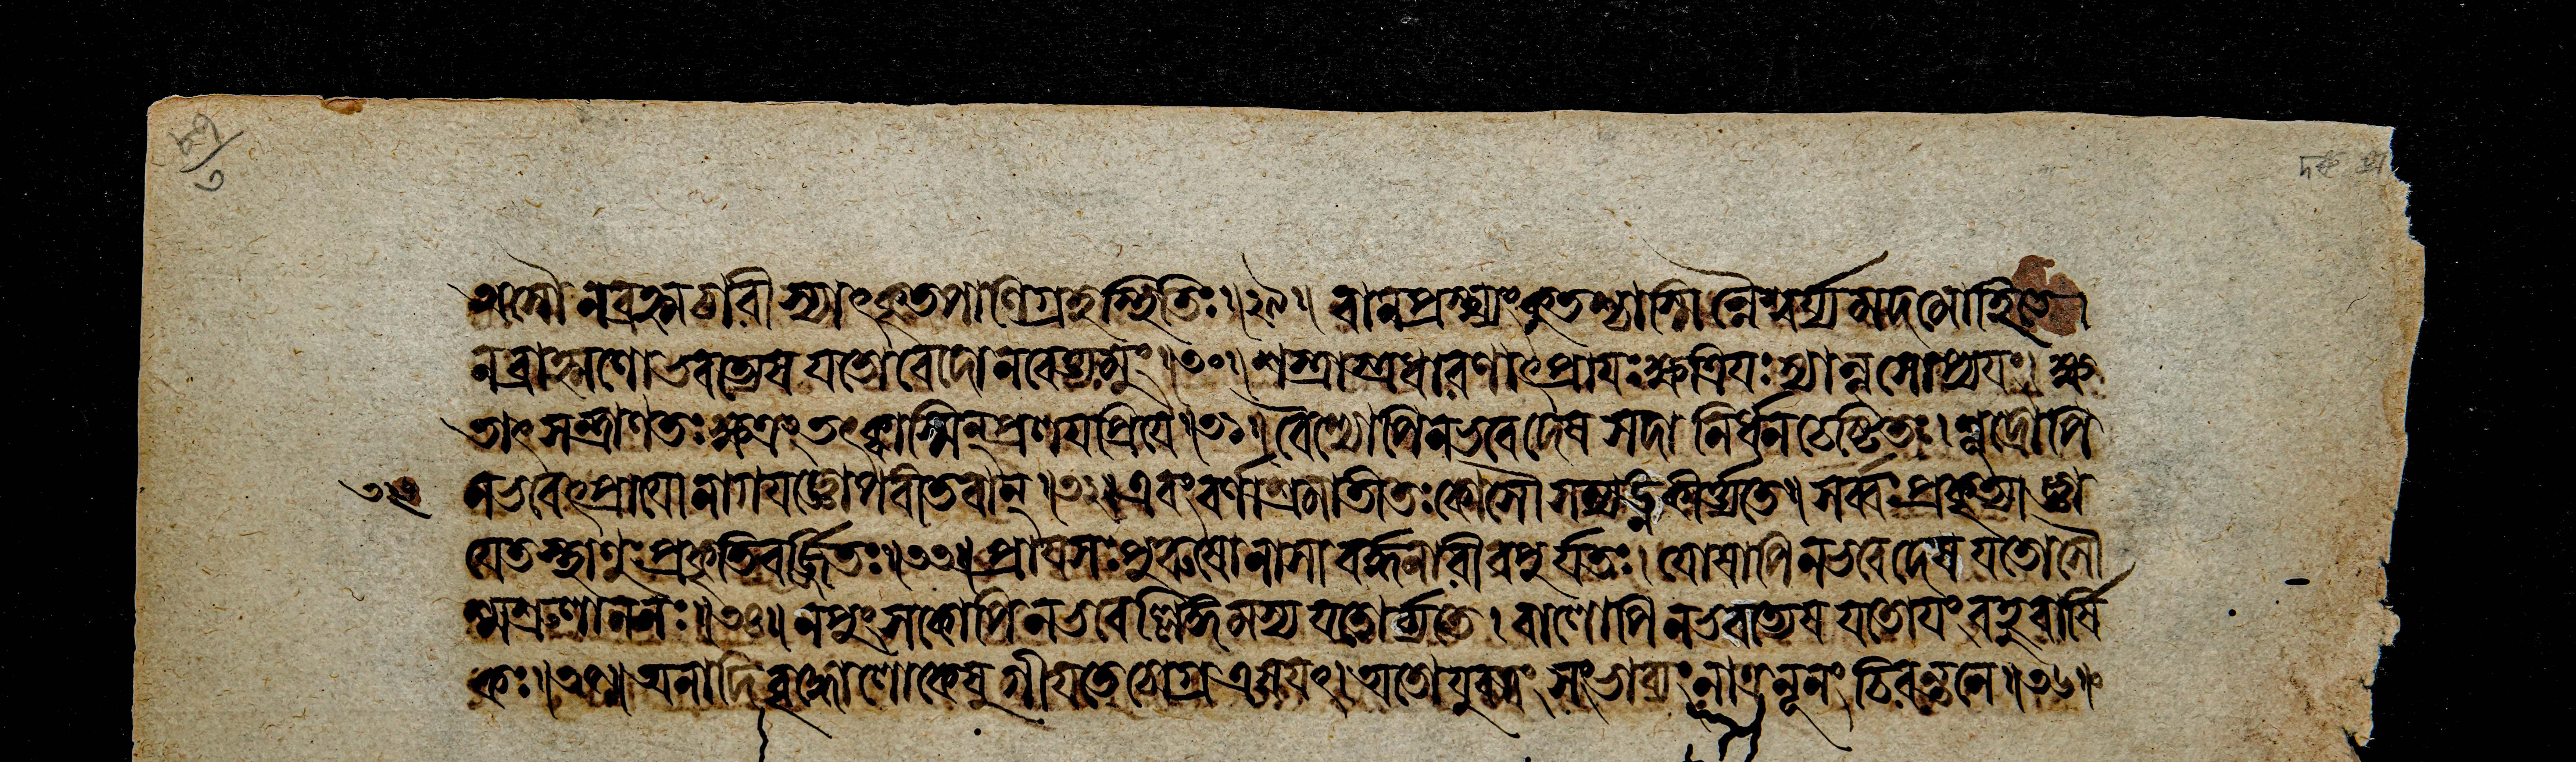 অসৌ নব্রহ্মচারী স্যাৎকৃতপাণিগ্রহস্থিতিঃ॥২৯॥ বানপ্রস্থ্যংকুতশ্চাস্মিন্নৈশ্বর্য্যমদমোহিতে।
নব্রাহ্মণোভবত্যেষ যতোবেদোনবেত্ত্যমুং॥৩০॥শস্ত্রাস্ত্রধারণাৎপ্রায়ঃক্ষত্রিয়ঃস্যান্নসোপ্যয়ং। ক্ষ
তাৎসন্ত্রাণতঃক্ষত্রংতৎক্বাস্মিন্প্রলয়প্রিয়ে॥৩১॥বৈশ্যোপিনভবেদেষ সদা নির্ধনচেষ্টিতঃ।শূদ্রোপি
নভবেৎপ্রায়োনাগযজ্ঞোপবীতবান্॥৩২॥এবংবর্ণাশ্রমাতীতঃকোসৌ সম্যঙ্নিকীর্ত্ত্যতে। সর্ব্বঃপ্রকৃত্যা জ্ঞা
য়েতস্থাণুঃপ্রকৃতিবর্জ্জিতঃ॥৩৩॥প্রায়সঃপুরুষোনাসা বর্দ্ধনারীবপুর্যতঃ। যোষাপিনভবেদেষ যতোসৌ
শ্মশ্রুলাননঃ॥৩৪॥নপুংসকোপিনভবেল্লিঙ্গমস্য যতোর্চ্যতে। বালোপি নভবত্যেষ যতোয়ংবহুবার্ষি
কঃ॥৩৫॥অনাদিবৃদ্ধোলোকেষু গীয়তে চোগ্র এষয়ৎ।অতোযুবত্বং সংভাব্যংনাত্রনূনং চিরন্তনে॥৩৬॥